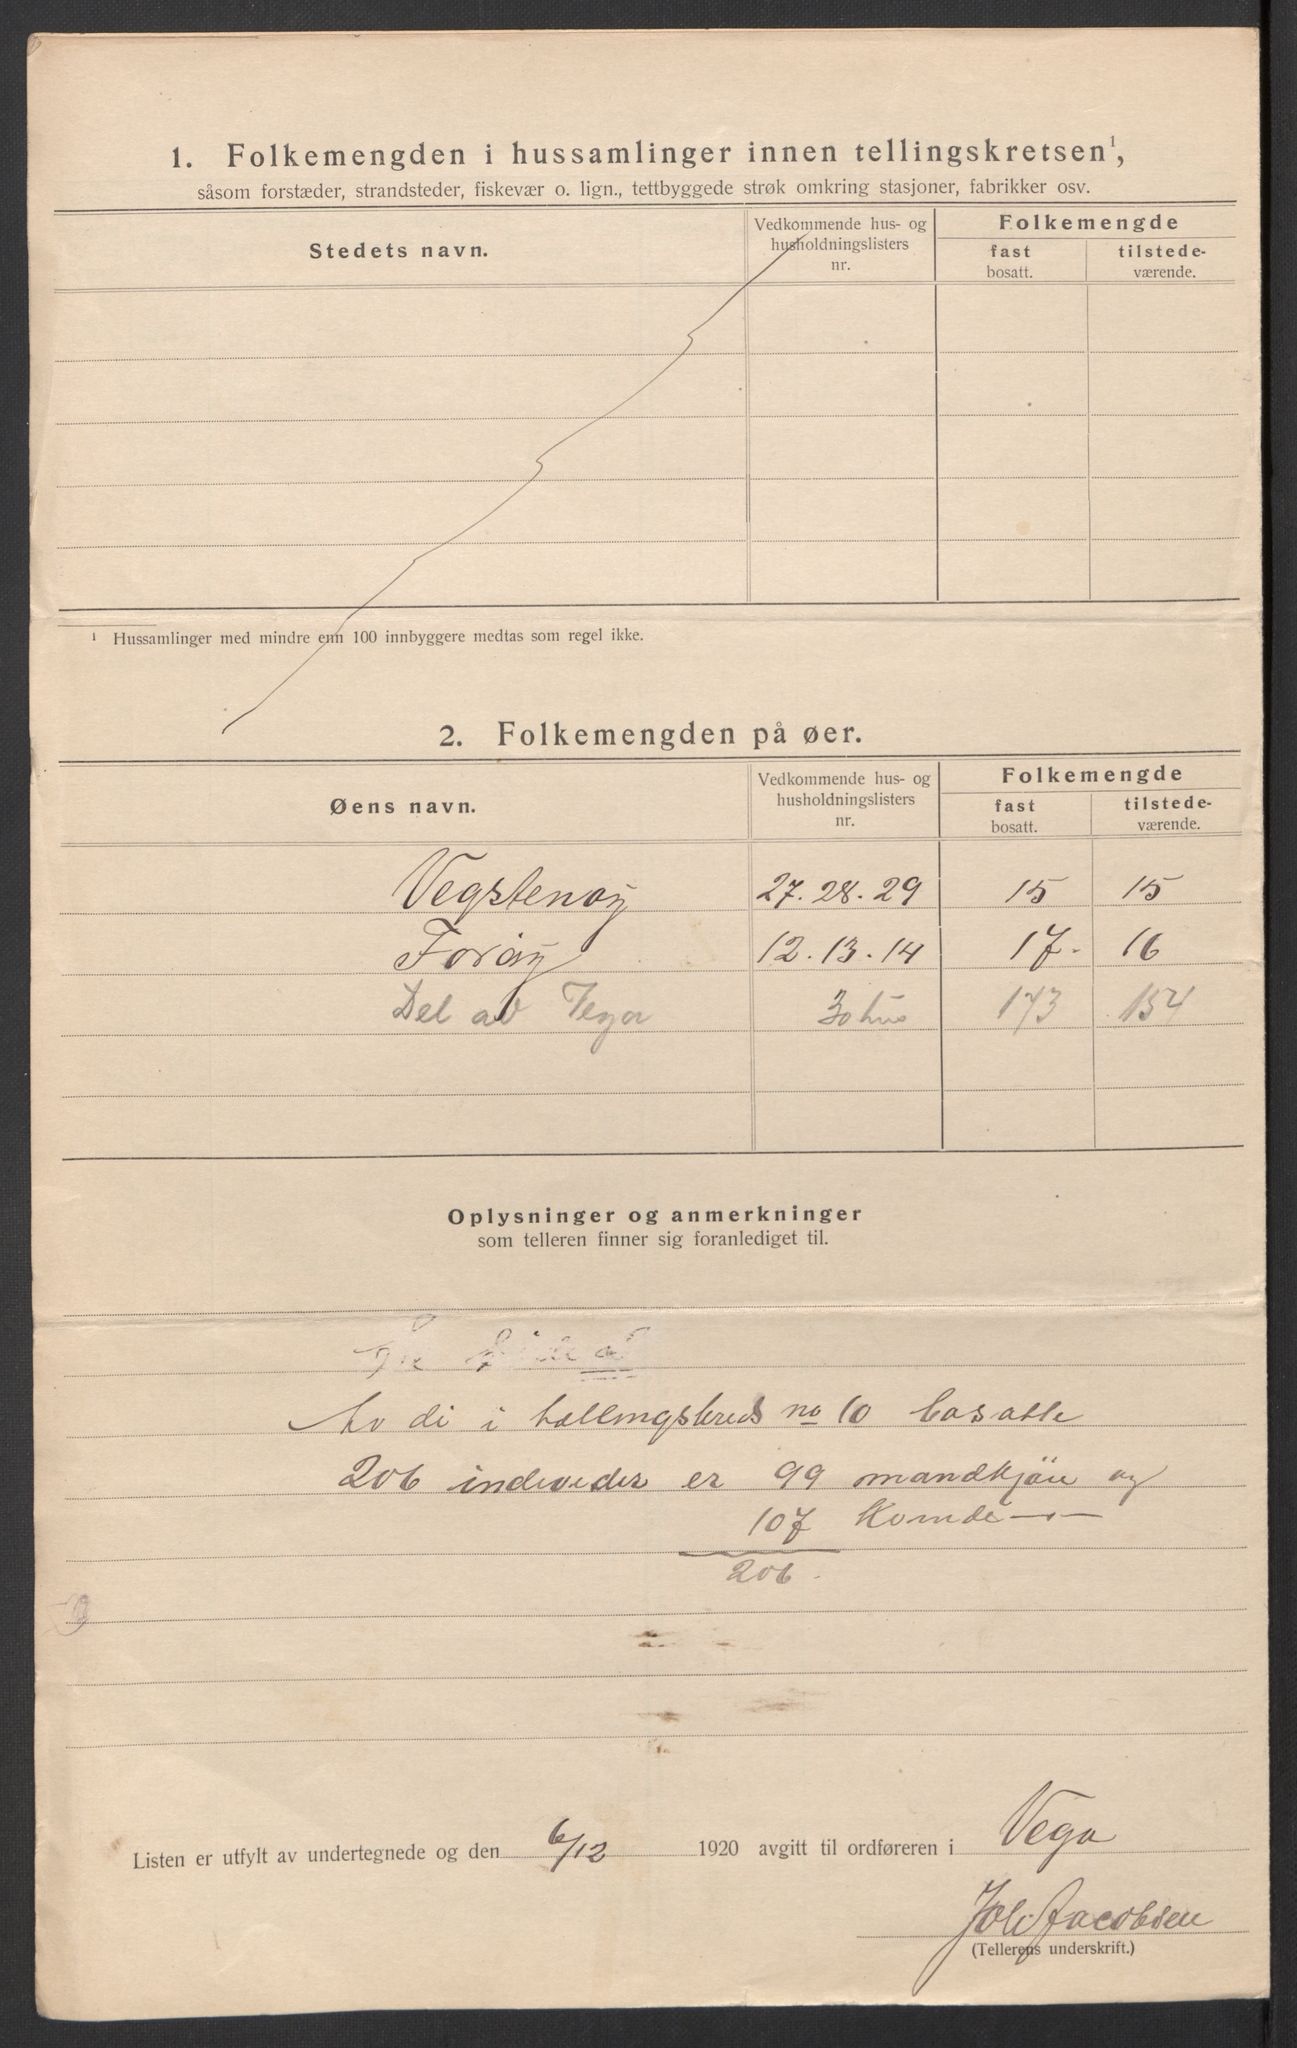 1. Folkemengden i hussamlinger innen tellingskretsen¹,
såsom forstæder, strandsteder, fiskevær o. lign., tettbyggede strøk omkring stasjoner, fabrikker osv.
Stedets navn. Vedkommende hus- og husholdningslisters nr. Folkemengde fast bosatt. tilstede-værende.
¹ Hussamlinger med mindre enn 100 innbyggere medtas som regel ikke.
2. Folkemengden på øer.
Øens navn. Vedkommende hus- og husholdningslisters nr. Folkemengde fast bosatt. tilstede-værende.
Vegstenöy 27. 28. 29 15 15
Foröy 12. 13. 14 17. 16
Del av Vega 30 hus 173 154
Oplysninger og anmerkninger
som telleren finner sig foranlediget til.
Av di i tællingskreds no 10 bosatte
206 individer er 99 mandkjön og
107 Kvinde —„—
206.
Listen er utfylt av undertegnede og den 6/12 1920 avgitt til ordføreren i Vega
Jacobsen
(Tellerens underskrift.)